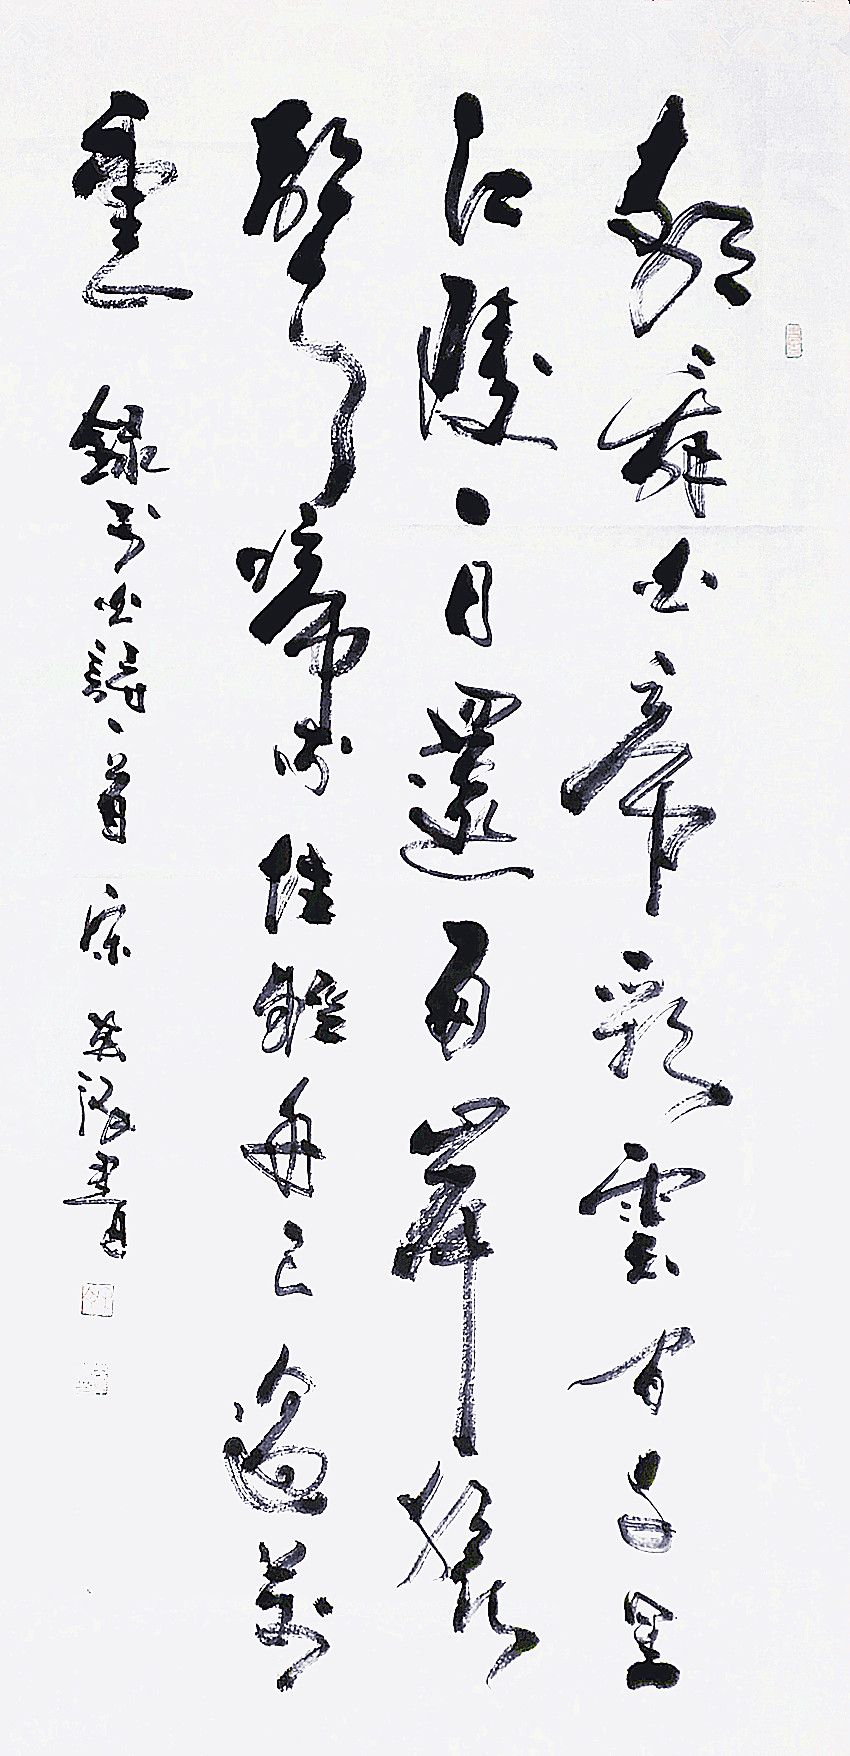 朝辭白帝彩雲間千里
江陵一日還兩岸猿
聲啼不住輕舟已過萬
重山 錄李白詩一首 書